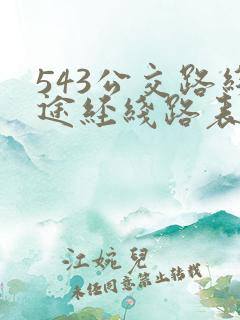 543公交路线
途经线路表
江婉兒
未任同意禁止转载